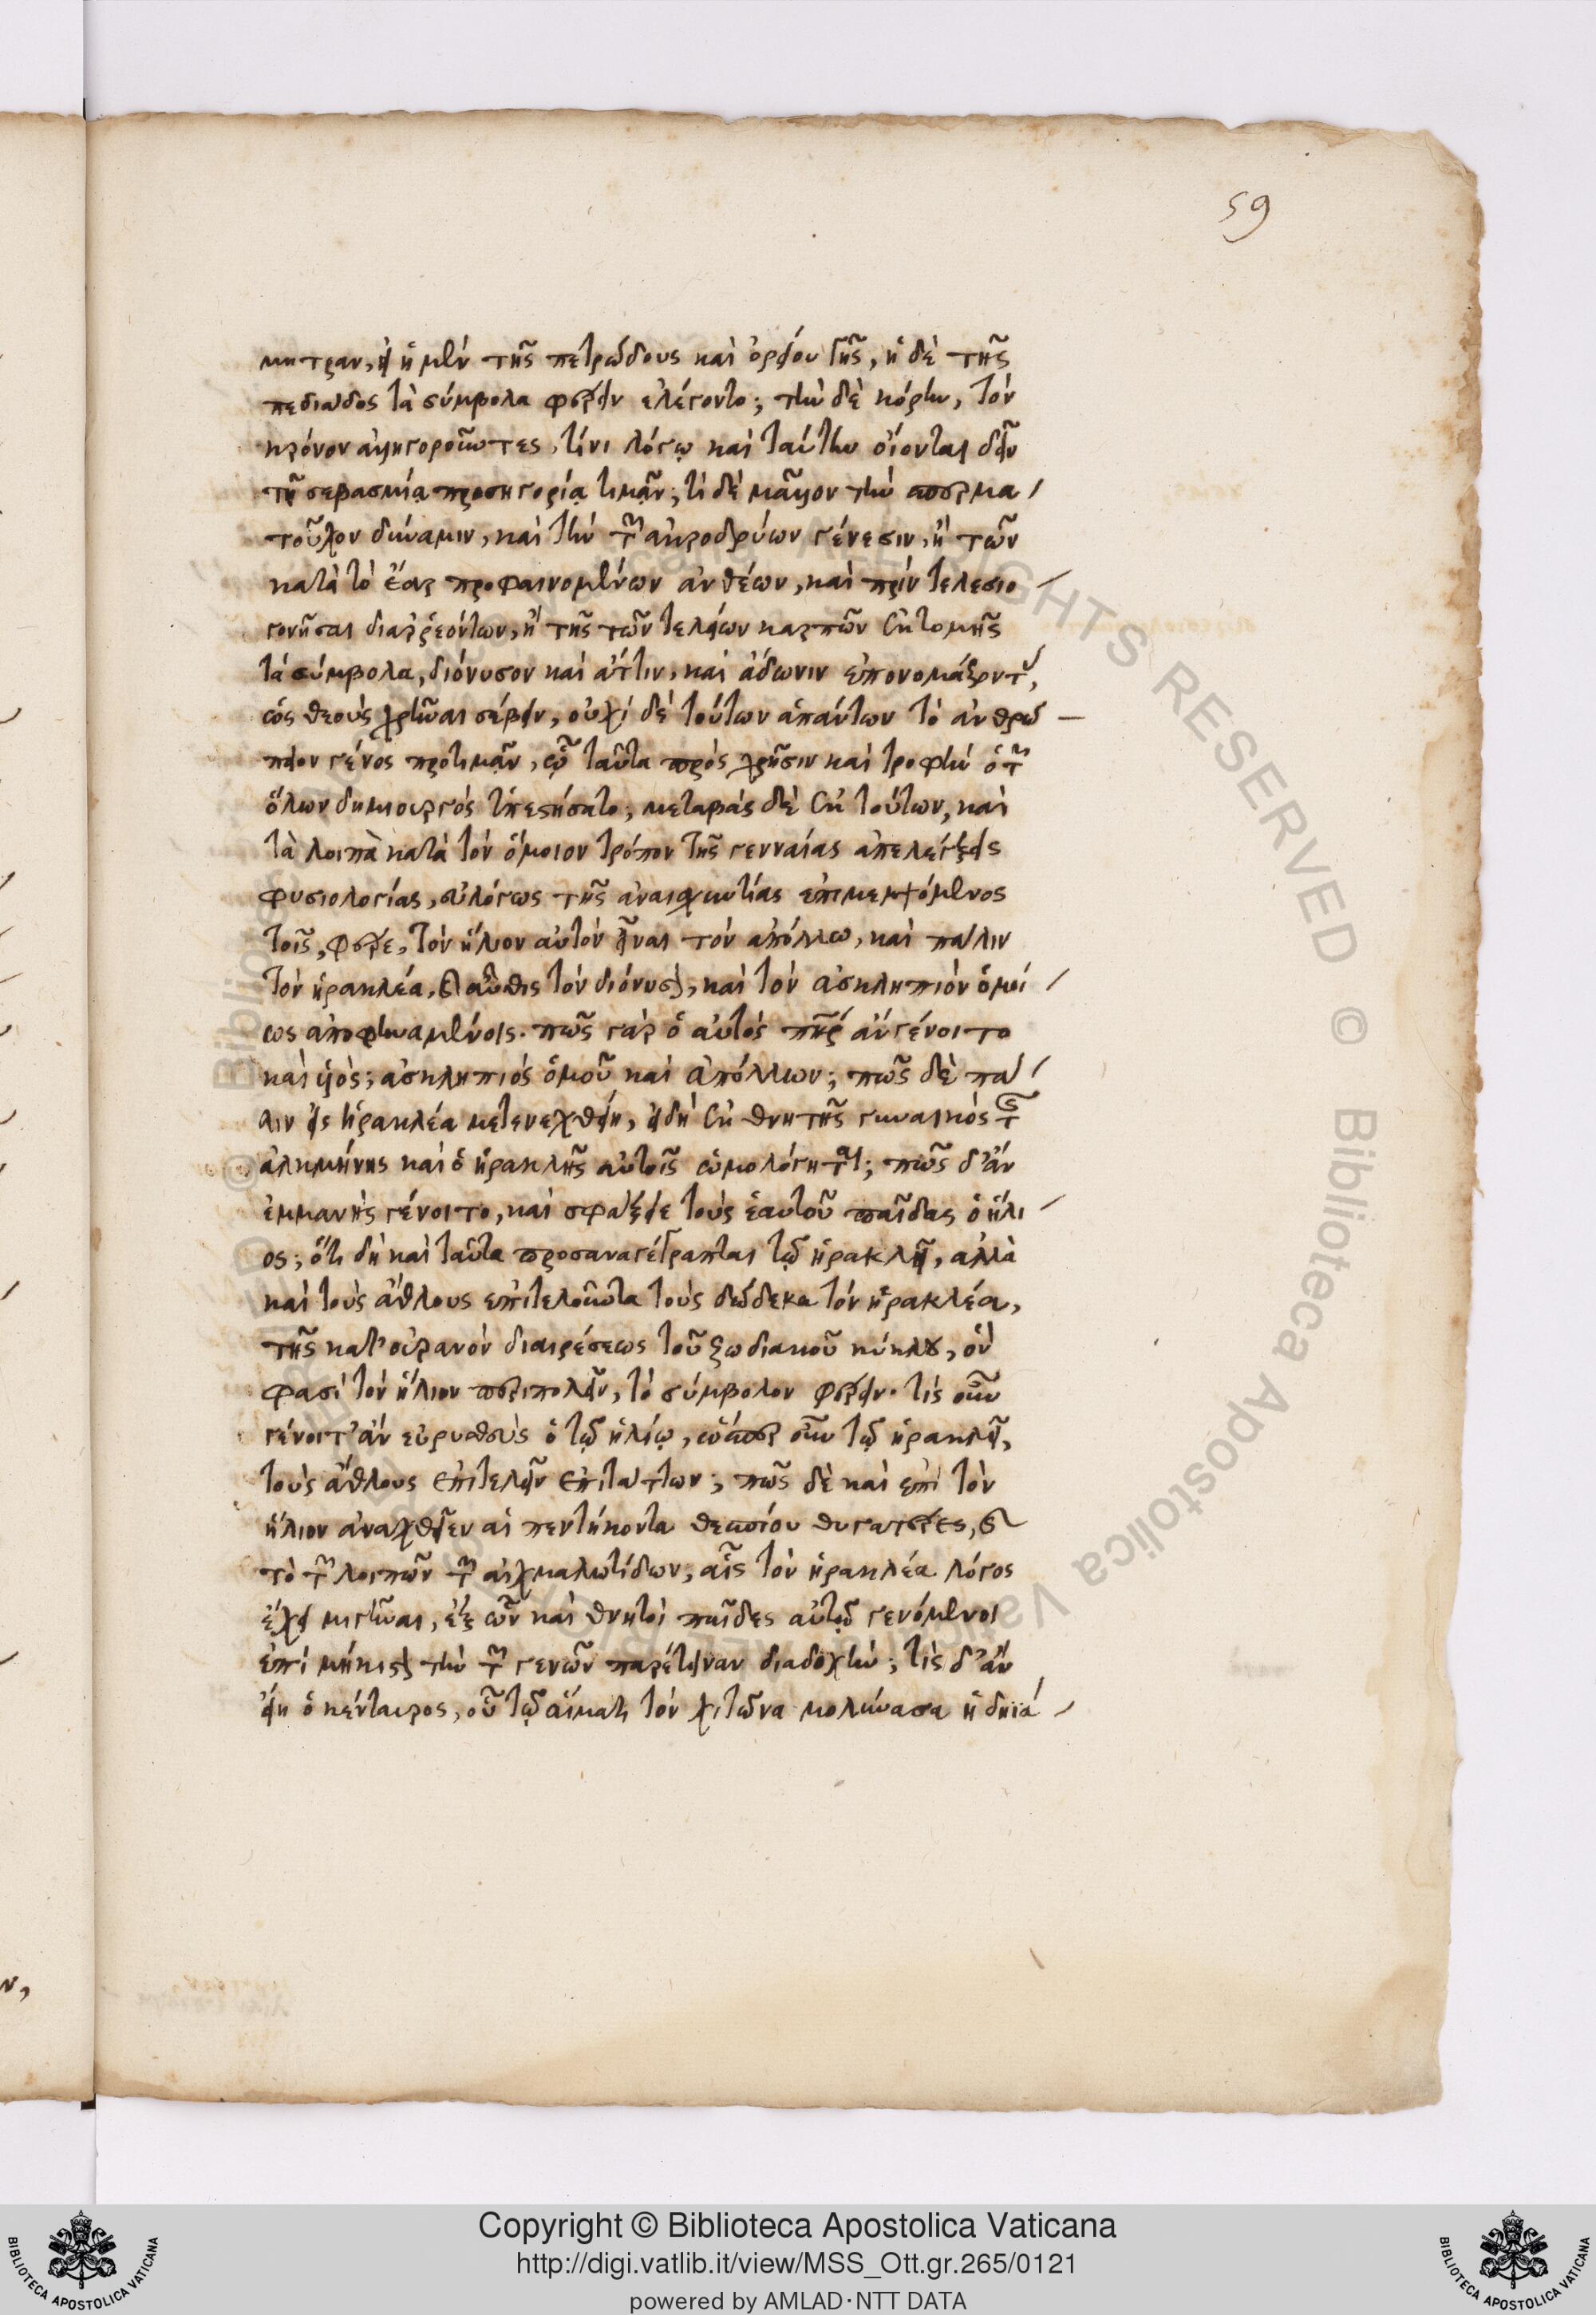 59
μητραν, εἰ ἡ μὲν τῆς πετρώδους καὶ ὀρείου γῆς, ἡ δὲ τῆς
πεδιάδος τὰ σύμβολα φέρειν ἐλέγοντο; τὴν δὲ κόρην, τὸν
κρόνον ἀλληγοροῦντες, τίνι λόγῳ καὶ ταύτην οἴονται δεῖν
τῇ σεβασμίᾳ προσηγορίᾳ τιμᾶν; τί δὲ μᾶλλον τὴν σπερμα
τοῦχον δύναμιν, καὶ τὴν τῶν ἀκροδρύων γένεσιν, ἢ τῶν
κατὰ τὸ ἔαρ προφαινομένων ἀνθέων, καὶ πρὶν τελεσιο
γονῆσαι διαρρεόντων, ἢ τῆς τῶν τελείων καρπῶν ἐκτομῆς
τὰ σύμβολα, διόνυσον καὶ ἄττιν, καὶ ἄδωνιν ἐπονομάζοντας,
ὡς θεοὺς χρῆναι σέβειν, οὐχὶ δὲ τούτων ἁπάντων τὸ ἀνθρώ
πειον γένος προτιμᾶν, ᾧ ταῦτα πρὸς χρῆσιν καὶ τροφὴν ὁ τῶν
ὅλων δημιουργὸς ὑπεστήσατο; μεταβὰς δὲ ἐκ τούτων, καὶ
τὰ λοιπὰ κατὰ τὸν ὅμοιον τρόπον τῆς γενναίας ἀπελέγξεις
φυσιολογίας, εὐλόγως τῆς ἀναισχυντίας ἐπιμεμψόμενος
τοῖς, φέρε, τὸν ἥλιον αὐτὸν εἶναι τὸν ἀπόλλω, καὶ πάλιν
τὸν ἡρακλέα, καὶ αὖθις τὸν διόνυσον, καὶ τὸν ἀσκληπιὸν ὁμοί
ως ἀποφηναμένοις. πῶς γὰρ ὁ αὐτὸς πατὴρ ἂν γένοιτο
καὶ υἱὸς; ἀσκληπιὸς ὁμοῦ καὶ ἀπόλλων; πῶς δὲ πά
λιν εἰς ἡρακλέα μετενεχθείη, ἐπειδὴ ἐκ θνητῆς γυναικὸς τῆς
ἀλκμήνης καὶ ὁ ἡρακλῆς αὐτοῖς ὡμολόγηται; πῶς δ' ἂν
ἐμμανὴς γένοιτο, καὶ σφάξειε τοὺς ἑαυτοῦ παῖδας ὁ ἥλι
ος; ὅτι δὴ καὶ ταῦτα προσαναγέγραπται τῷ ἡρακλεῖ, ἀλλὰ
καὶ τοὺς ἄθλους ἐπιτελοῦντα τοὺς δώδεκα τὸν ἡρακλέα,
τῆς κατ' οὐρανὸν διαιρέσεως τοῦ ζωδιακοῦ κύκλου, ὃν
φασὶ τὸν ἥλιον περιπολεῖν, τὸ σύμβολον φέρειν. τίς οὖν
γένοιτ' ἂν εὐρυσθεὺς ὁ τῷ ἡλίῳ, ὥσπερ οὖν τῷ ἡρακλεῖ,
τοὺς ἄθλους ἐπιτελεῖν ἐπιτάττων; πῶς δὲ καὶ ἐπὶ τὸν
ἥλιον ἀναχθεῖεν αἱ πεντήκοντα θεσπίου θυγατέρες, καὶ
τὸ τῶν λοιπῶν τῶν αἰχμαλωτίδων, αἷς τὸν ἡρακλέα λόγος
ἔχει μιγῆναι, ἐξ ὧν καὶ θνητοὶ παῖδες αὐτῷ γενόμενοι
ἐπὶ μήκιστον τὴν τῶν γενῶν παρέτειναν διαδοχήν; τίς δ' ἂν
εἴη ὁ κένταυρος, οὗ τῷ αἵματι τὸν χιτῶνα μολύνασα ἡ δηϊά
Copyright © Biblioteca Apostolica Vaticana
http://digi.vatlib.it/view/MSS_Ott.gr.265/0121
powered by AMLAD·NTT DATA